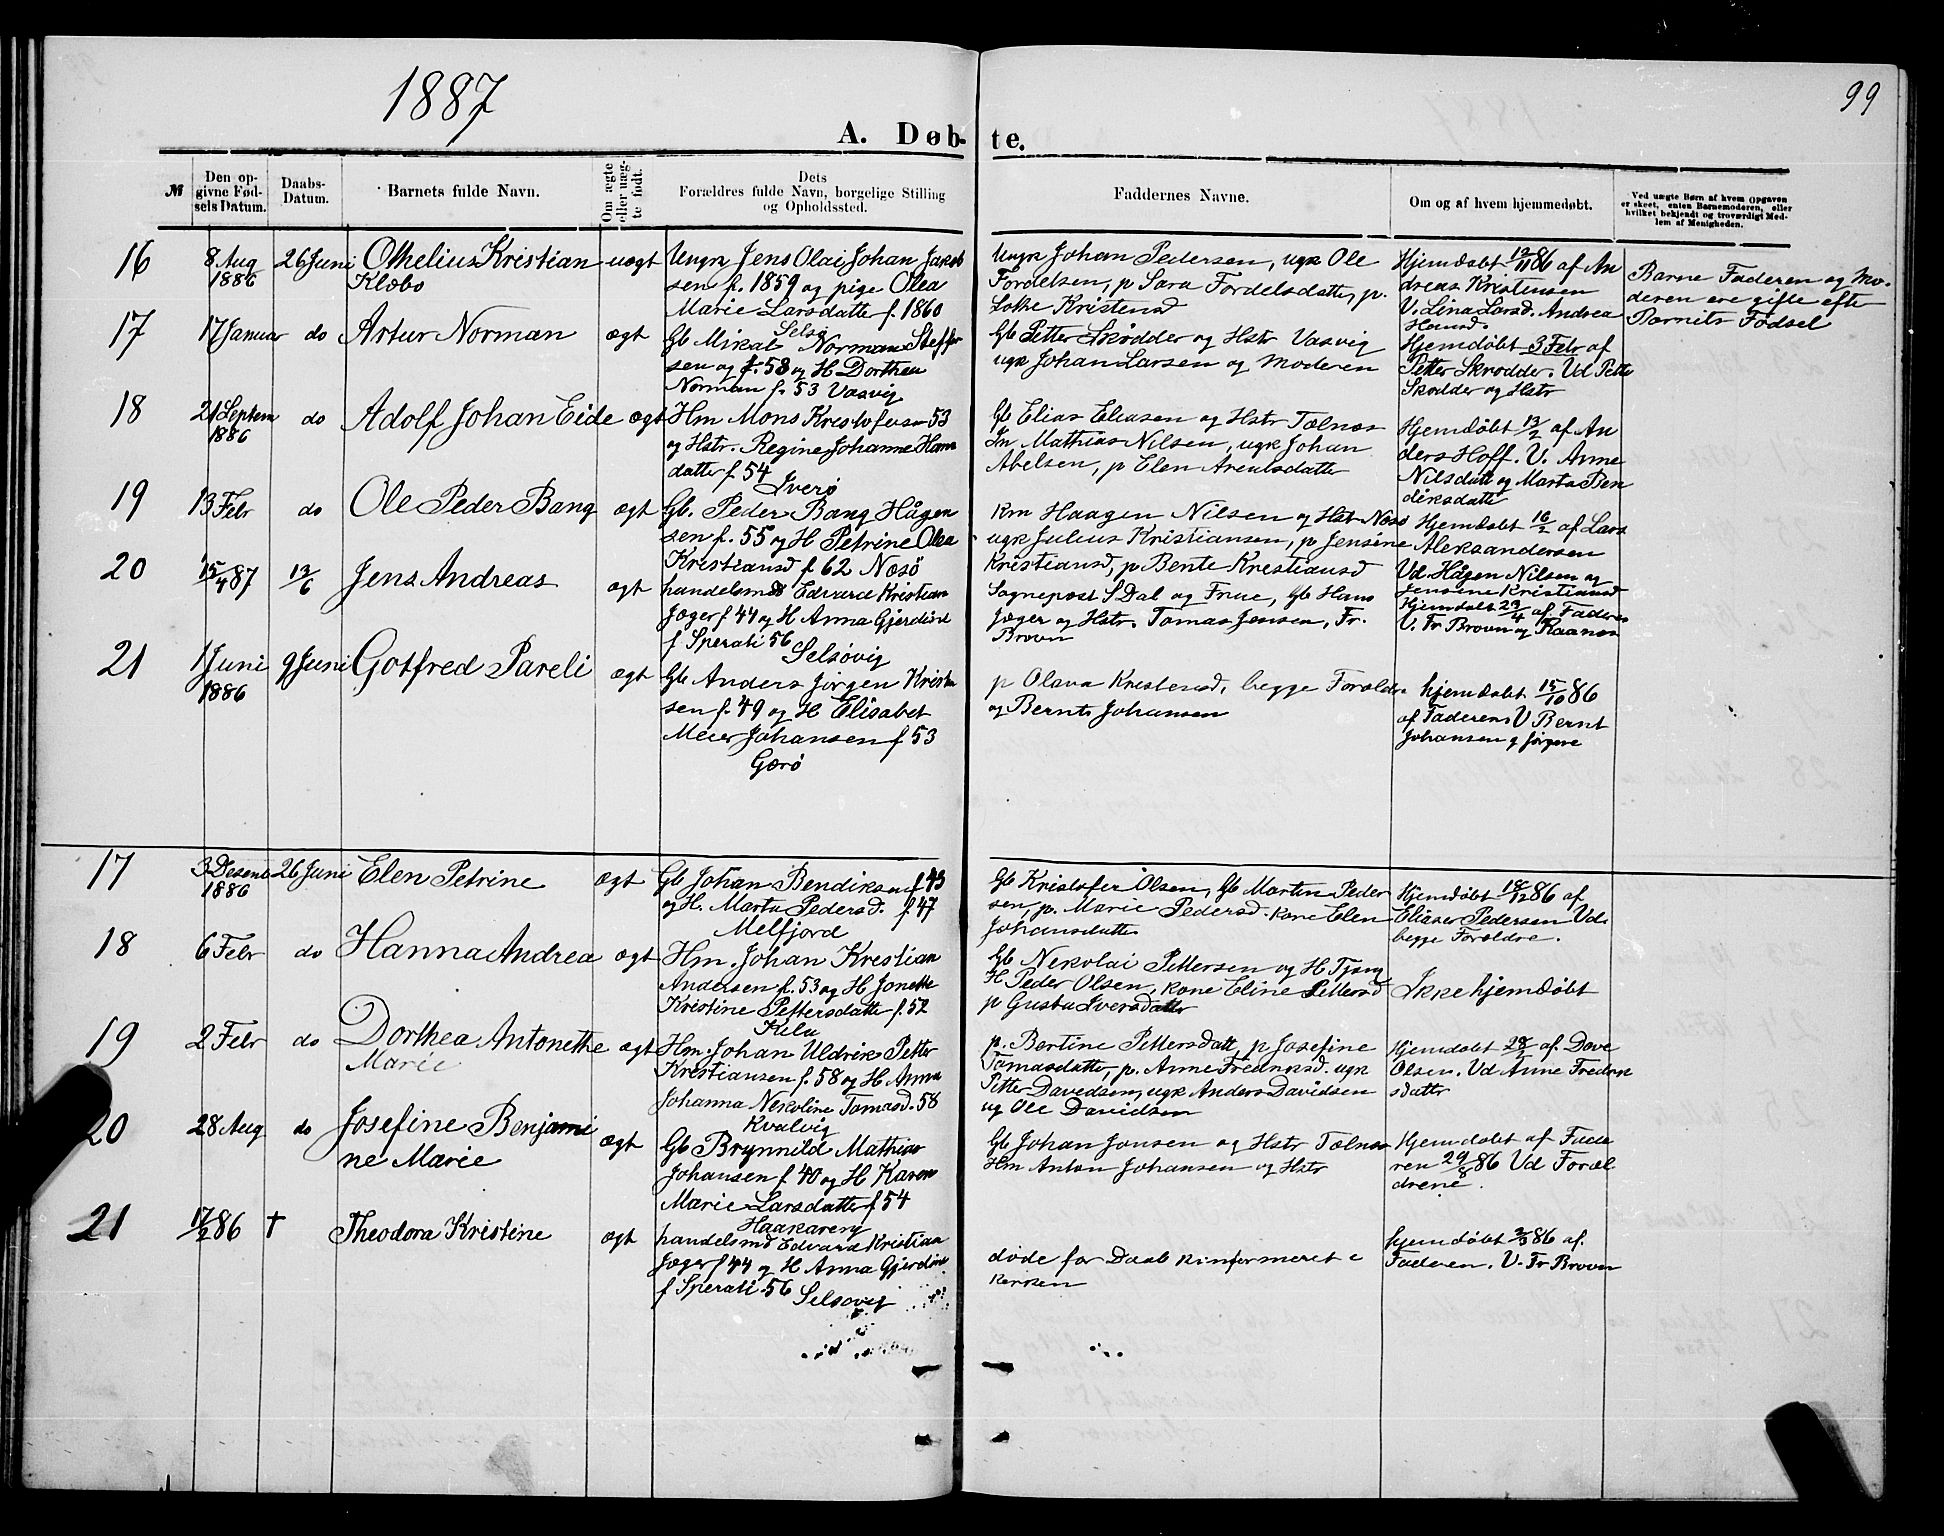 1887
99
A. Døb- te.
№
Den opgivne Fødsels Datum.
Daabs-Datum.
Barnets fulde Navn.
Om ægte eller uægte født.
Dets Forældres fulde Navn, borgelige Stilling og Opholdssted.
Faddernes Navne.
Om og af hvem hjemmedøbt.
Ved uægte Børn af hvem Opgaven er skeet, enten Barnemoderen, eller hvilket bekjendt og troværdigt Medlem af Menigheden.
16
8 Aug
1886
26 Juni
Othelius Kristian
Klæbo
uægt
Ungk Jens Olai Johan Jakob
sen f. 1859 og pige Olea
Marie Larsdatter f. 1860
Selsø
Ungk Johan Pedersen, ugk Ole
Fordelsen, p Sara Fordelsdatter, p.
Lokke Kristensd
Hjemdøbt 12/11 86 af An
dreas Kristensen
V. Lina Larsd. Andrea
Hansd.
Barne Faderen og Mo-
deren ere gifte efter
Barnets Fødsel
17
17 Januar
do
Artur Norman
ægt
Gb Mikal Norman Steffen
sen og f. 58 og H Dorthea
Norman f. 53 Vasvig
Gb Petter Skødder og Hstr Vasvig
ugk Johan Larsen og Moderen
Hjemdøbt 3 Febr af
Petter Skrodder. Vd Petter
Skodder og Hstr
18
21 Septem
1886
do
Adolf Johan Eide
ægt
Hm Mons Kristofersen 53
og Hstr. Regine Johanne Hans
datter f 54
Iverø
Gb Elias Eliasen og Hstr Tælnes
Im Mathias Nilsen, ugk Johan
Abelsen, p Elen Arentsdatter
Hjemdøbt 13/2 af An
ders Hoff. V. Anne
Nilsdatt og Marta Ben
diksdatte
19
13 Febr
do
Ole Peder Bang
ægt
Gb. Peder Bang Hågen
sen f. 55 og H Petrine Olea
Kristiansd f. 62 Næsø
Km Haagen Nilsen og Hstr Næsø
ugk Julius Kristiansen, p Jensine
Kristiansd, p Bente Krestiansd
Hjemdøbt 16/2 af Lars
Aleksandersen
Vd. Hågen Nilsen og
Jensine Kristiansd
20
15/4 87
12/6
Jens Andreas
ægt
handelsmd Edvard Kristian
Jæger f 44 og H Anna Gjerdine
f Sperati 56
Selsøvig
Sognepræst S Dal og Frue, Gb Hans
Jæger og Hstr. Tomas Jensen, Fr.
Brovn
Hjemdøbt 23/4 af Faderen
V. Fr Brovn og Raanes
21
1 Juni
1886
9 Juni
Gotfred Pareli
ægt
Gb Anders Jørgen Krist
sen f. 49 og H Elisabet
Meier Johansen f 53
Gærø
p Olava Krestensd, begge Foreldre
og Bernt Johansen
hjemdøbt 15/10 86
af Faderen V Bernt
Johansen g Jørgine
17
3 Desemb
1886
26 Juni
Elen Petrine
ægt
Gb Johan Bendiksen f 43
og H. Marta Pedersd. f. 47
Melfjord
Gb Kristofer Olsen, Gb Martin Peder
sen, p. Marie Pedersd. kone Elen
Johansdatte
Hjemdøbt 18/12 86 af
Eliaser Pedersen Vd
begge Foreldre.
18
6 Febr
do
Hanna Andrea
ægt
Hm. Johan Krestian
Andersen f. 53 og H Jonette
Kristine Pettersdatte f. 52
Kila
Gb Nekolai Pettersen og H Tjong
H Peder Olsen, kone Eline Pettersd
p Gusta Iversdatter
Ikke hjemdøbt
19
2 Febr
do
Dorthea Antonethe
Marie
ægt
Hm. Johan Uldrik Petter
Kristiansen f. 58 og H Anna
Johanna Nekoline Tomasd. 58
Kvalvig
p. Bertine Pettersdatt, p Josefine
Tomasdatter, p. Anne Fredriksd. ugk
Petter Davedsen, ugk Anders Davidsen
ug Ole Davidsen
Hjemdøbt 28/2 af Dave
Olsen. Vd Anne Fredrik
sdatter
20
28 Aug
do
Josefine Benjami
ne Marie
ægt
Gb Brynnild Mathias
Johansen f 40 og H Karen
Marie Larsdatter f 54
Haakarevg
Gb Johan Jonsen og Hstr Tælnes
Hm Anton Johansen og Hstr
Hjemdøbt af Fade
ren 29/8 86 Vd Foræl
drene
21
17/2 86
†
Theodora Kristine
ægt
handelsmd Edvard Kristian
Jæger f 44 og H Anna Gjerdine
f Sperati 56
Selsovig
døde før Daab kinfermeret i
kerken
hjemdøbt 2/3 86 af
Faderen. V. Fr Brovn